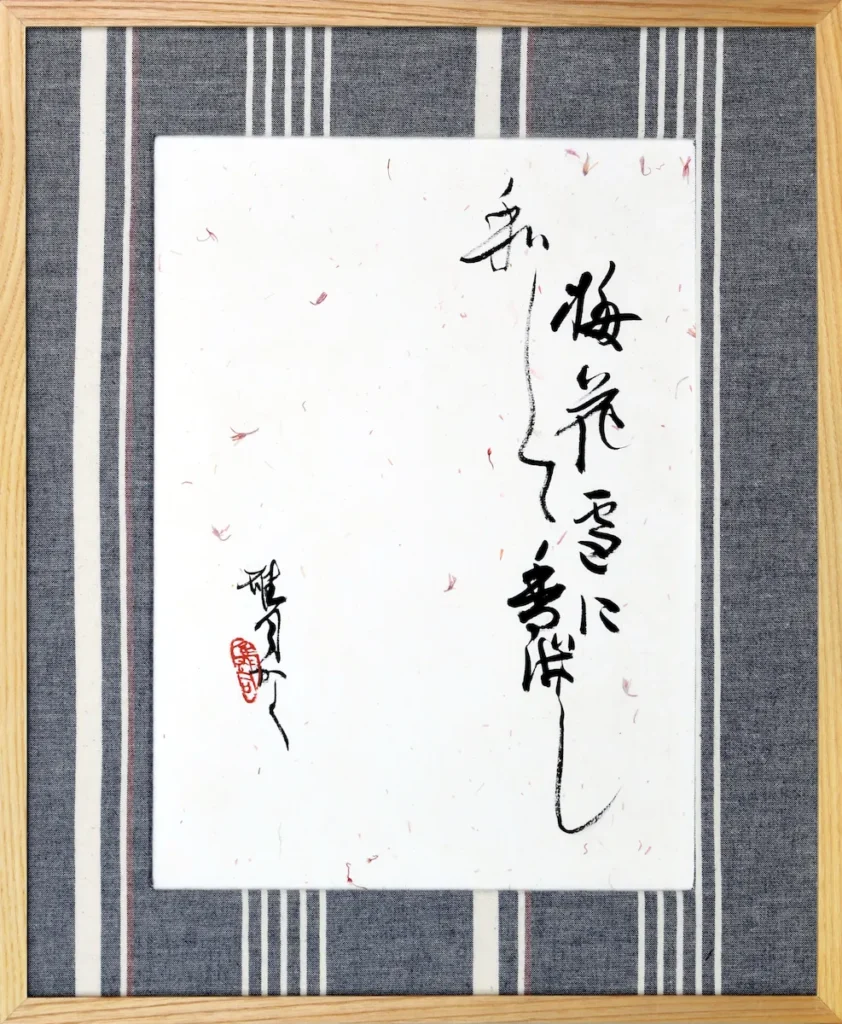 梅花雪に
和して香し
雅月かく